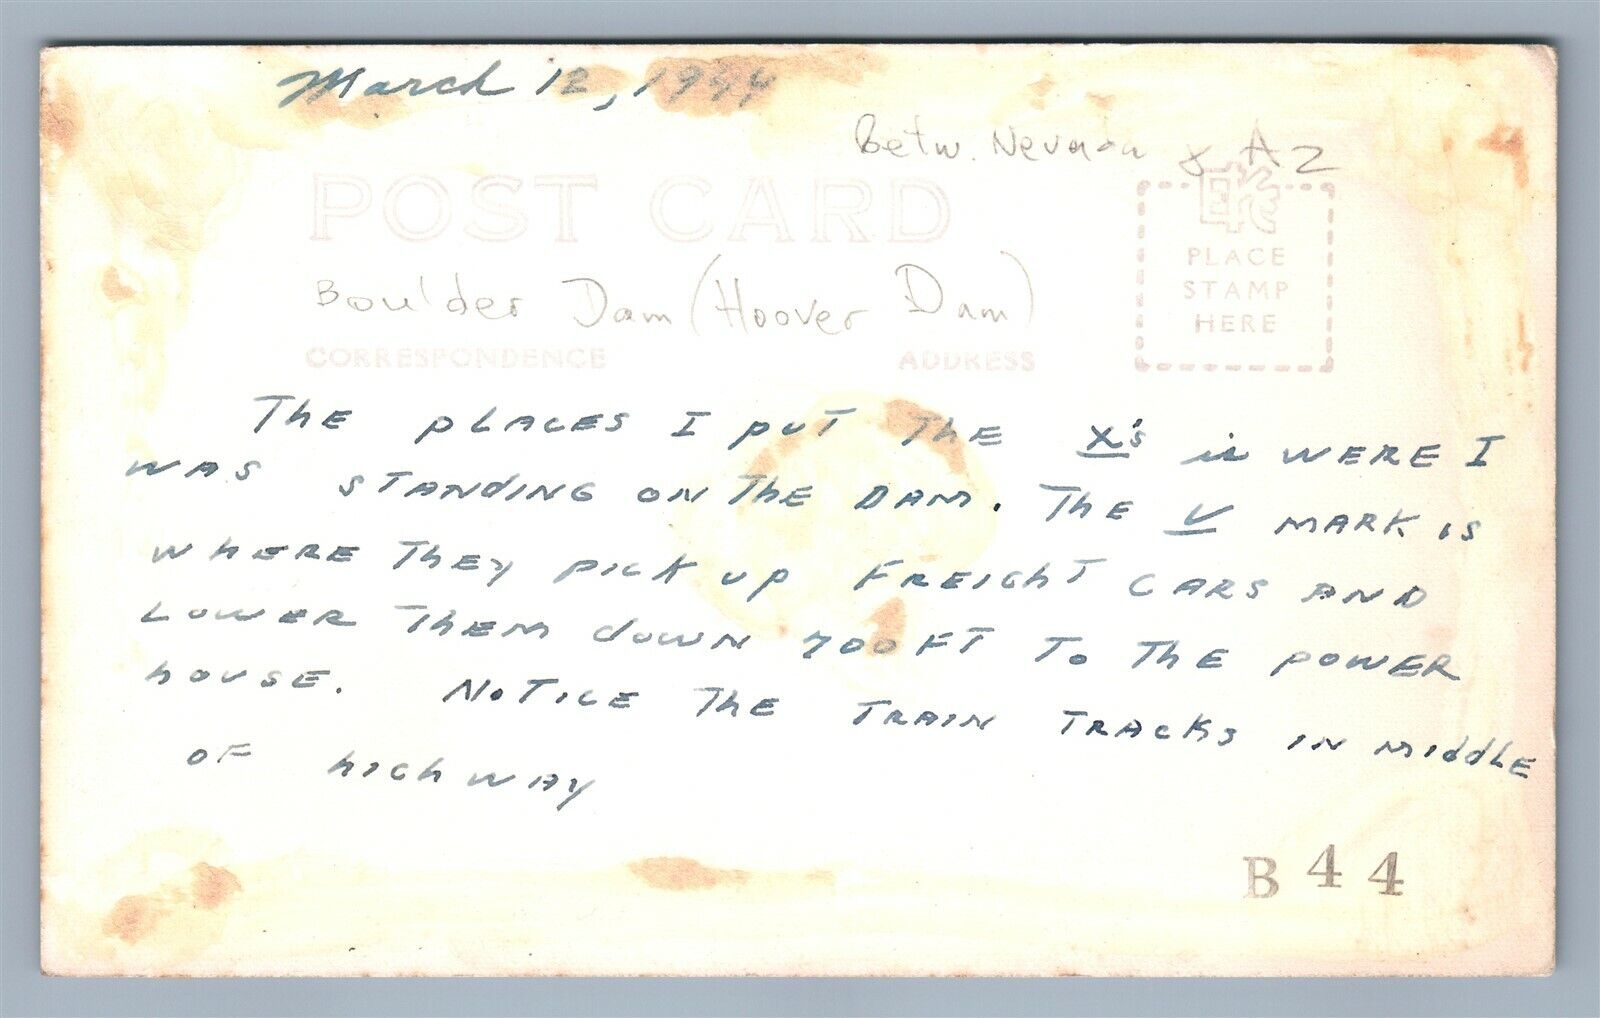 March 12, 1944
Betw. Nevada & AZ
POST CARD
EKC
PLACE
STAMP
HERE
Boulder Dam (Hoover Dam)
CORRESPONDENCE ADDRESS
THE PLACES I PUT THE X's is WERE I
WAS STANDING ON THE DAM. THE V MARK IS
WHERE THEY PICK UP FREIGHT CARS AND
LOWER THEM DOWN 700 FT TO THE POWER
HOUSE. NOTICE THE TRAIN TRACKS IN MIDDLE
OF HIGHWAY
B 44